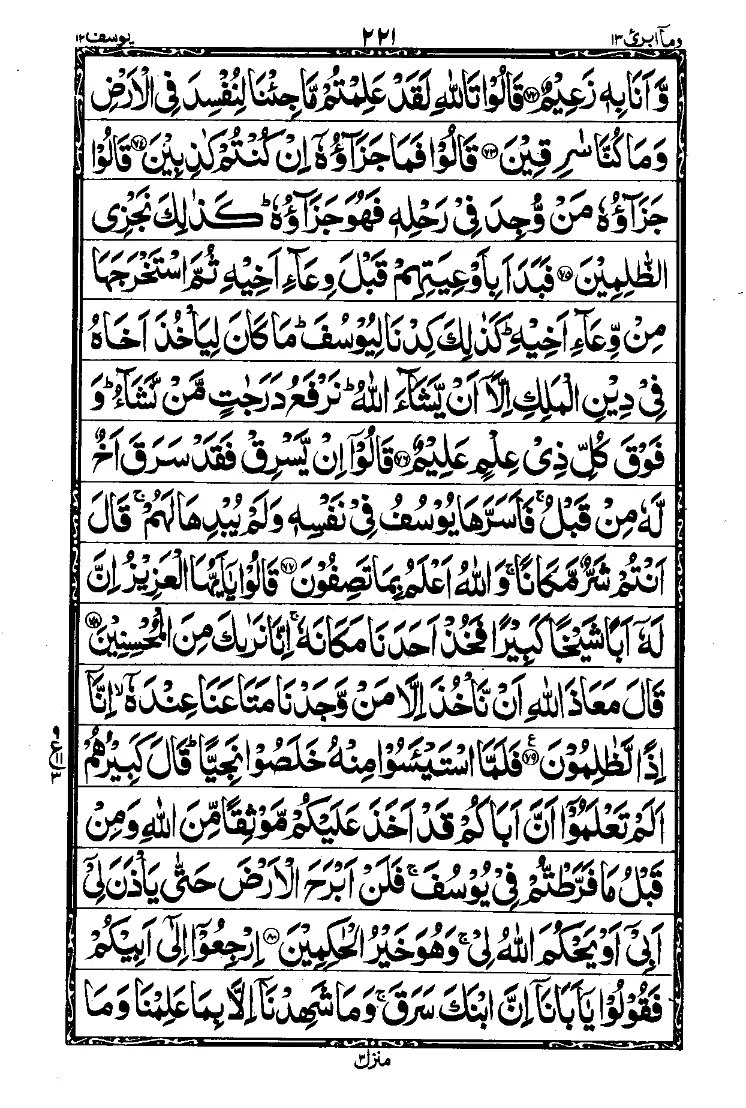 وما ابرئ ١٣ ٢٢١ يوسف ١٢
وَّاَنَا بِهٖ زَعِيْمٌ ﴿۷۲﴾ قَالُوْا تَاللّٰهِ لَقَدْ عَلِمْتُمْ مَّا جِئْنَا لِنُفْسِدَ فِى الْاَرْضِ
وَمَا كُنَّا سٰرِقِيْنَ ﴿۷۳﴾ قَالُوْا فَمَا جَزَآؤُهٗۤ اِنْ كُنْتُمْ كٰذِبِيْنَ ﴿۷۴﴾ قَالُوْا
جَزَآؤُهٗ مَنْ وُّجِدَ فِىْ رَحْلِهٖ فَهُوَ جَزَآؤُهٗ ؕ كَذٰلِكَ نَجْزِى
الظّٰلِمِيْنَ ﴿۷۵﴾ فَبَدَاَ بِاَوْعِيَتِهِمْ قَبْلَ وِعَآءِ اَخِيْهِ ثُمَّ اسْتَخْرَجَهَا
مِنْ وِّعَآءِ اَخِيْهِ ؕ كَذٰلِكَ كِدْنَا لِيُوْسُفَ ؕ مَا كَانَ لِيَاْخُذَ اَخَاهُ
فِىْ دِيْنِ الْمَلِكِ اِلَّاۤ اَنْ يَّشَآءَ اللّٰهُ ؕ نَرْفَعُ دَرَجٰتٍ مَّنْ نَّشَآءُ ؕ وَ
فَوْقَ كُلِّ ذِىْ عِلْمٍ عَلِيْمٌ ﴿۷۶﴾ قَالُوْۤا اِنْ يَّسْرِقْ فَقَدْ سَرَقَ اَخٌ
لَّهٗ مِنْ قَبْلُ ۚ فَاَسَرَّهَا يُوْسُفُ فِىْ نَفْسِهٖ وَلَمْ يُبْدِهَا لَهُمْ ۚ قَالَ
اَنْتُمْ شَرٌّ مَّكَانًا ۚ وَاللّٰهُ اَعْلَمُ بِمَا تَصِفُوْنَ ﴿۷۷﴾ قَالُوْا يٰۤاَيُّهَا الْعَزِيْزُ اِنَّ
لَهٗۤ اَبًا شَيْخًا كَبِيْرًا فَخُذْ اَحَدَنَا مَكَانَهٗ ۚ اِنَّا نَرٰىكَ مِنَ الْمُحْسِنِيْنَ ﴿۷۸﴾
قَالَ مَعَاذَ اللّٰهِ اَنْ نَّاْخُذَ اِلَّا مَنْ وَّجَدْنَا مَتَاعَنَا عِنْدَهٗۤ ۙ اِنَّاۤ
اِذًا لَّظٰلِمُوْنَ ﴿۷۹﴾ ع فَلَمَّا اسْتَيْئَسُوْا مِنْهُ خَلَصُوْا نَجِيًّا ؕ قَالَ كَبِيْرُهُمْ
اَلَمْ تَعْلَمُوْۤا اَنَّ اَبَاكُمْ قَدْ اَخَذَ عَلَيْكُمْ مَّوْثِقًا مِّنَ اللّٰهِ وَمِنْ
قَبْلُ مَا فَرَّطْتُّمْ فِىْ يُوْسُفَ ۚ فَلَنْ اَبْرَحَ الْاَرْضَ حَتّٰى يَاْذَنَ لِىْۤ
اَبِىْۤ اَوْ يَحْكُمَ اللّٰهُ لِىْ ۚ وَهُوَ خَيْرُ الْحٰكِمِيْنَ ﴿۸۰﴾ اِرْجِعُوْۤا اِلٰٓى اَبِيْكُمْ
فَقُوْلُوْا يٰۤاَبَانَاۤ اِنَّ ابْنَكَ سَرَقَ ۚ وَمَا شَهِدْنَاۤ اِلَّا بِمَا عَلِمْنَا وَمَا
منزل ٣